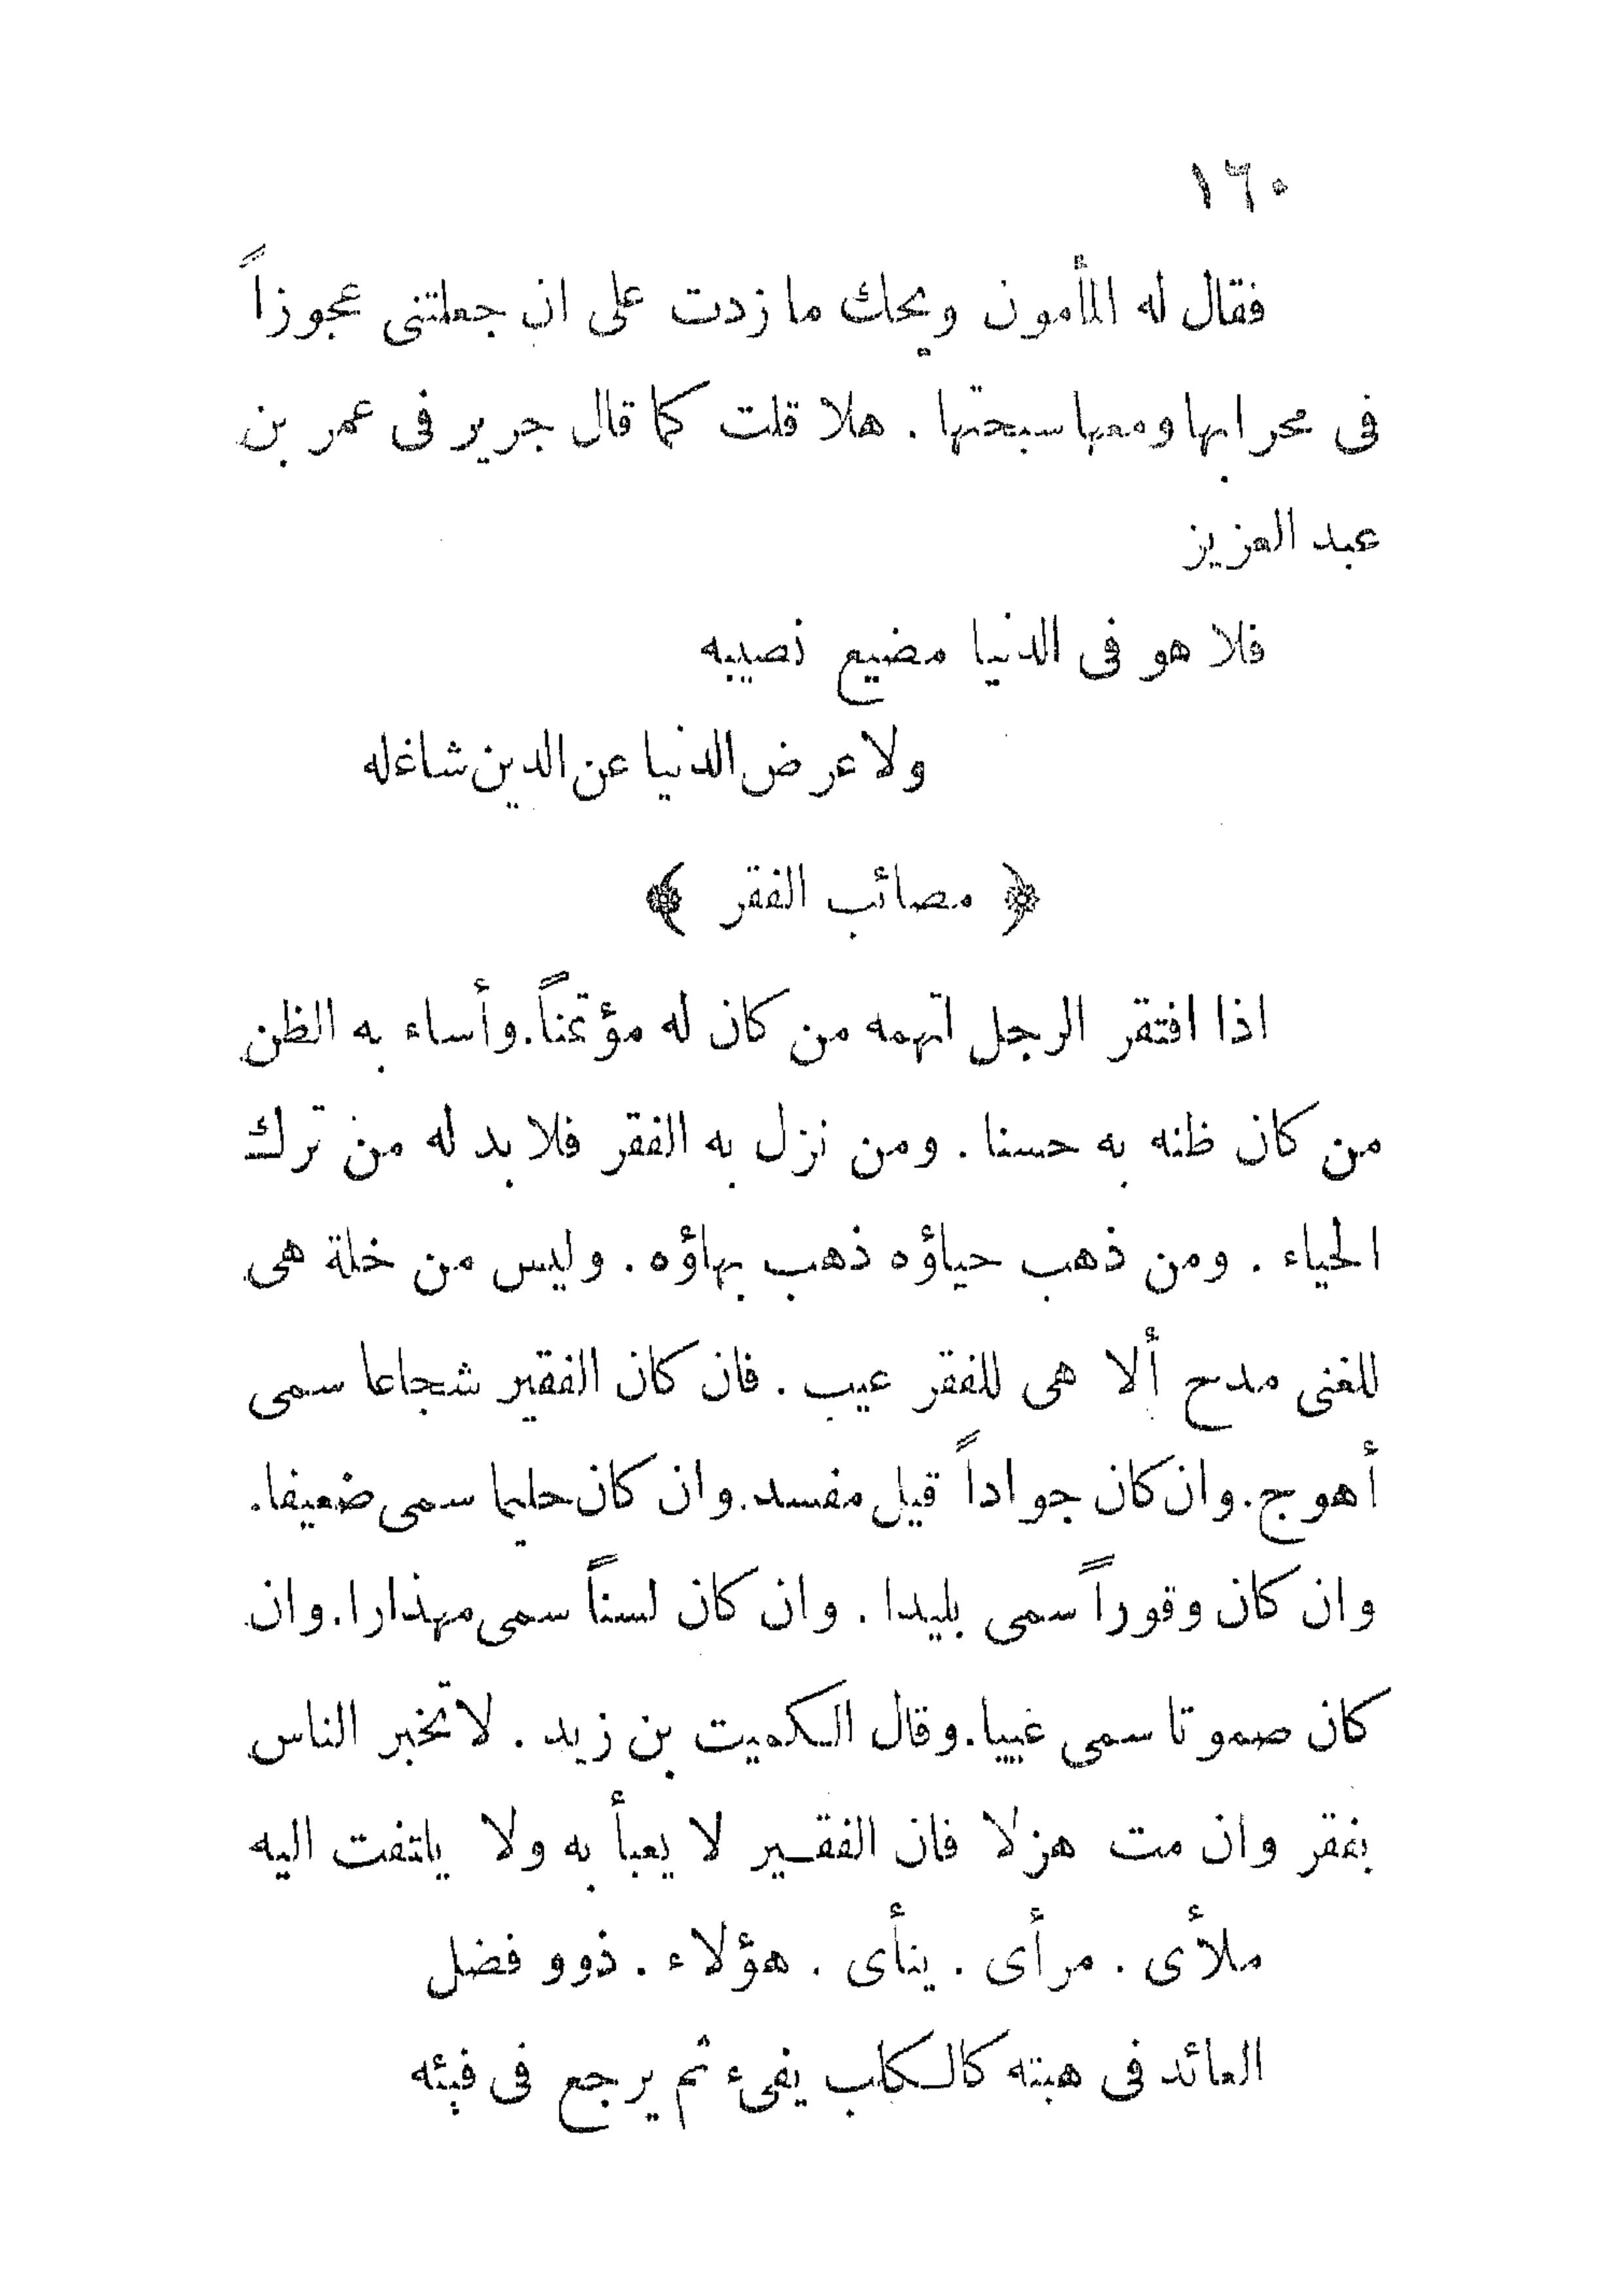 ١٦٠
فقال له المأمون ويحك ما زدت على ان جعلتنى عجوزاً
فى محرابها ومعها سبحتها . هلا قلت كما قال جرير فى عمر بن
عبد العزيز
فلا هو فى الدنيا مضيع نصيبه
ولا عرض الدنيا عن الدين شاغله
﴿ مصائب الفقر ﴾
اذا افتقر الرجل اتهمه من كان له مؤتمناً.وأساء به الظن
من كان ظنه به حسنا . ومن نزل به الفقر فلا بد له من ترك
الحياء . ومن ذهب حياؤه ذهب بهاؤه . وليس من خلة هى
للغنى مدح ألا هى للفقر عيب . فان كان الفقير شجاعا سمى
أهوج.وان كان جواداً قيل مفسد.وان كان حليما سمى ضعيفا.
وان كان وقوراً سمى بليدا . وان كان لسناً سمى مهذارا.وان
كان صموتا سمى غبيا.وقال الكميت بن زيد . لا تخبر الناس
بفقر وان مت هزلا فان الفقير لا يعبأ به ولا يلتفت اليه
ملأى . مرأى . ينأى . هؤلاء . ذوو فضل
العائد فى هبته كالكلب يفىء ثم يرجع فى فيئه